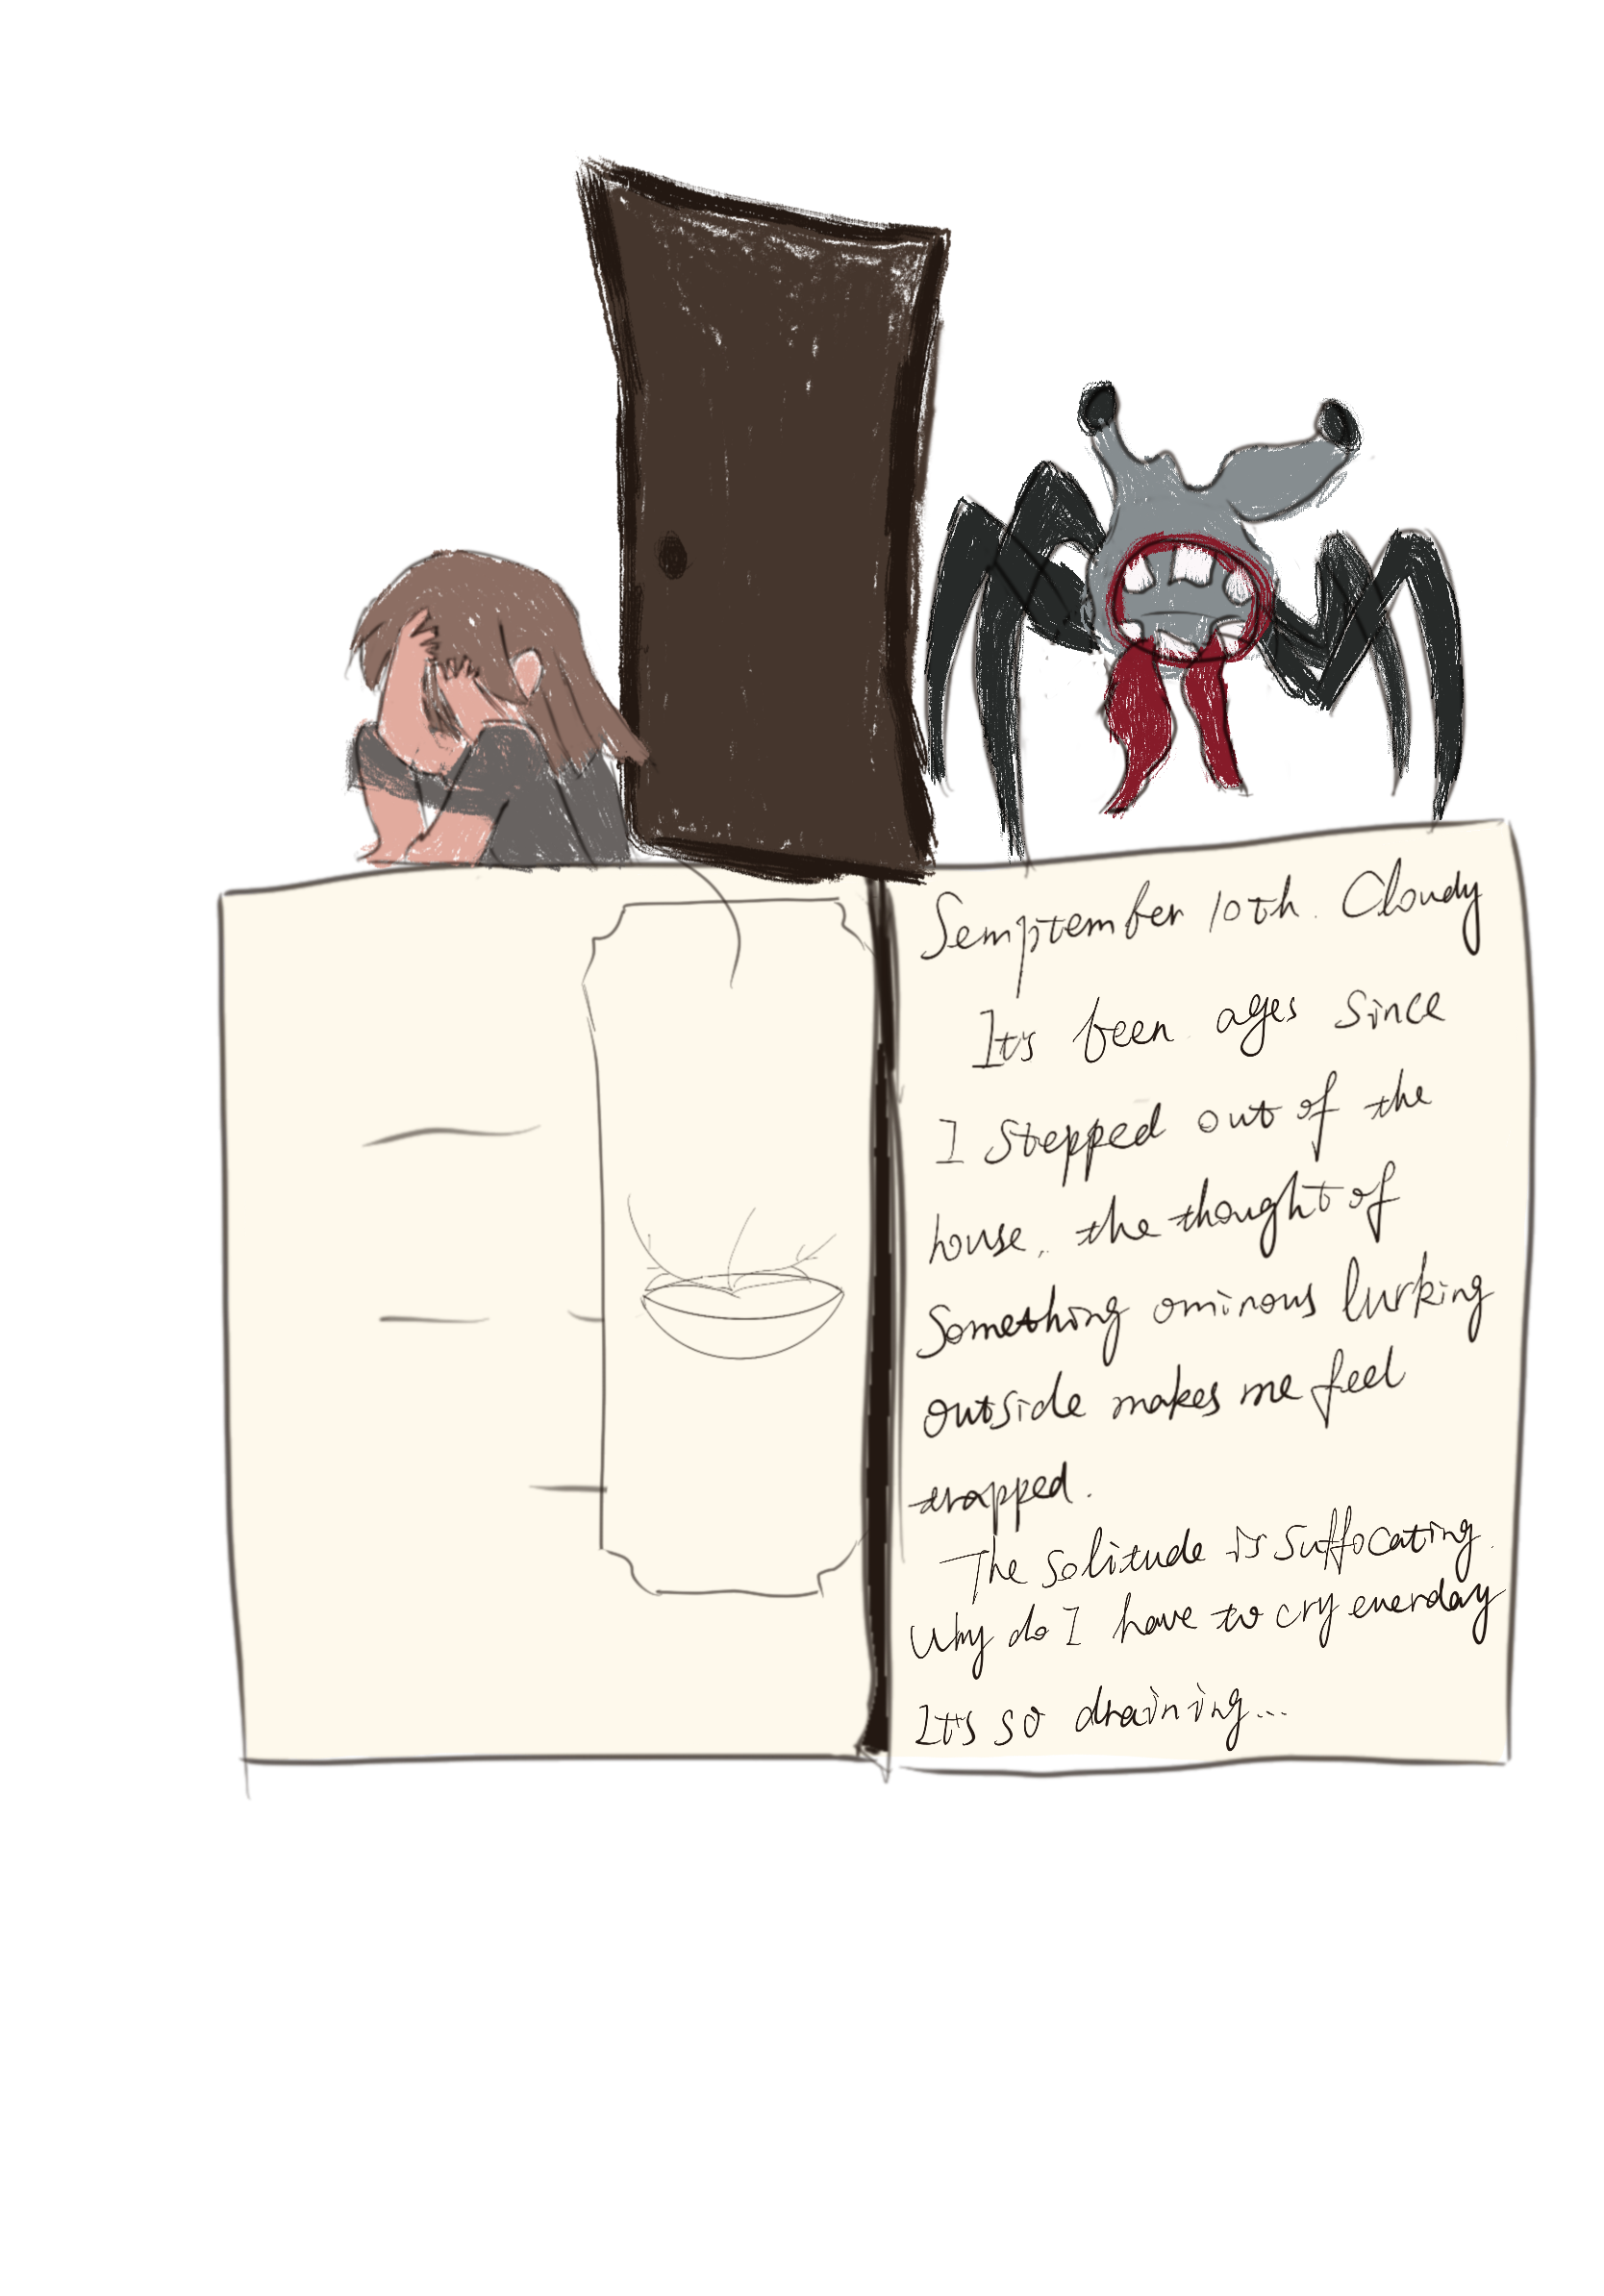 Semptember 10th. Cloudy
It's been ages since
I stepped out of the
house, the thought of
Something ominous lurking
outside makes me feel
trapped.
The solitude is suffocating.
Why do I have to cry everday
It's so draining...